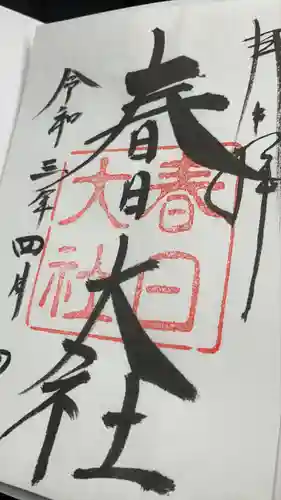 拝
春日大社
春日
大社
令和三年四月